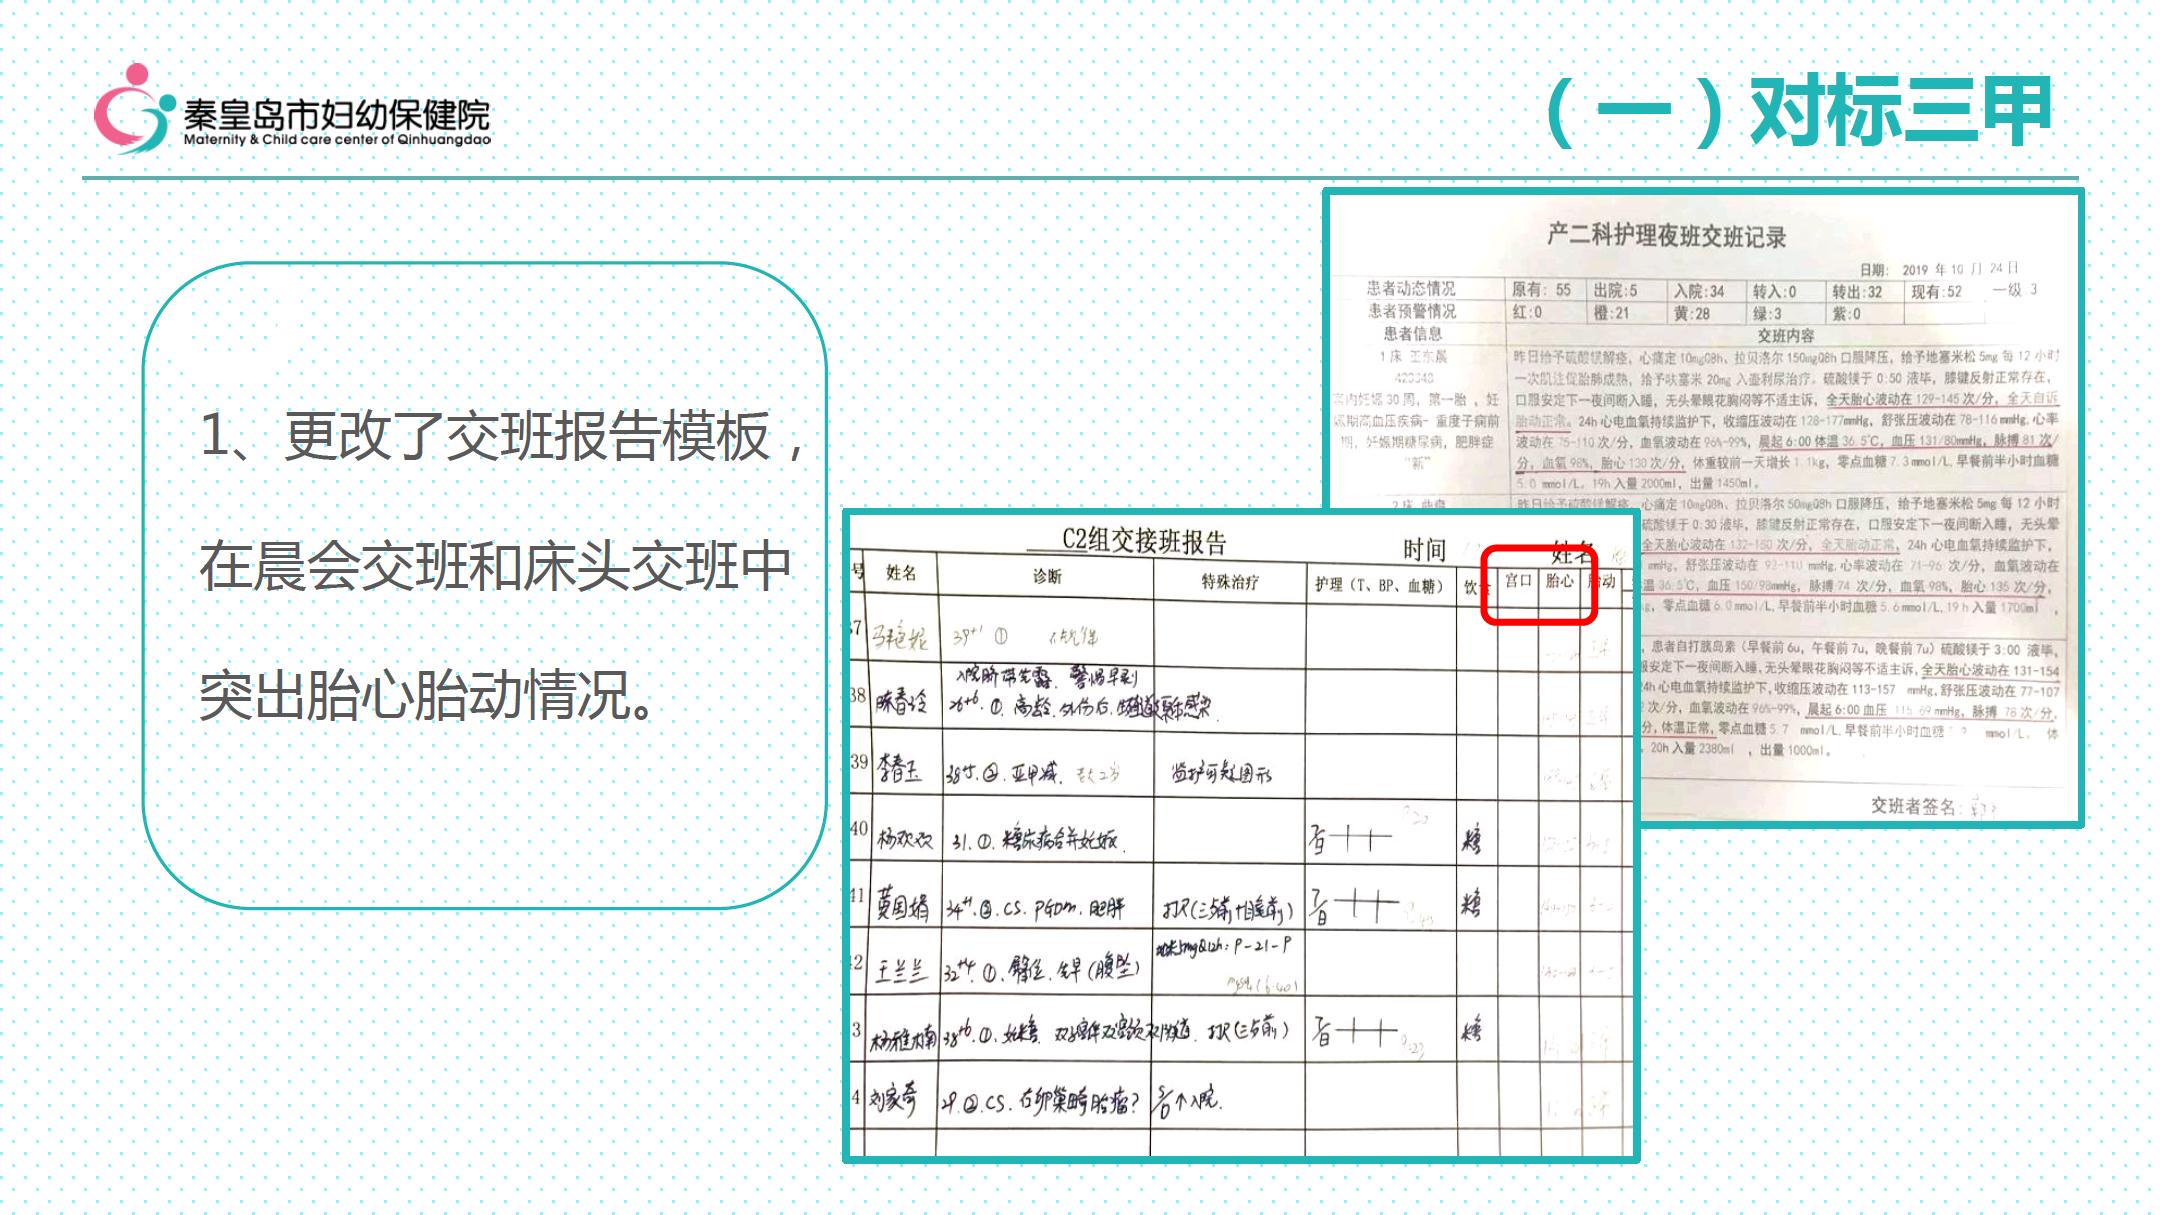 秦皇岛市妇幼保健院
Maternity & Child care center of Qinhuangdao
（一）对标三甲
1、更改了交班报告模板，
在晨会交班和床头交班中
突出胎心胎动情况。
产二科护理夜班交班记录
日期: 2019 年 10 月 24 日
患者动态情况 原有: 55 出院:5 入院:34 转入:0 转出:32 现有:52 一级 3
患者预警情况 红:0 橙:21 黄:28 绿:3 紫:0
患者信息 交班内容
1 床 王东晨
宫内妊娠 30 周，第一胎，妊
娠期高血压疾病- 重度子痫前
期，妊娠期糖尿病，肥胖症
“新”
昨日给予硫酸镁解痉，心痛定 10mgQ8h、拉贝洛尔 150mgQ8h 口服降压，给予地塞米松 5mg 每 12 小时
一次肌注促胎肺成熟，给予呋塞米 20mg 入壶利尿治疗。硫酸镁于 0:50 液毕，膝键反射正常存在，
口服安定下一夜间断入睡，无头晕眼花胸闷等不适主诉，全天胎心波动在 129-145 次/分，全天自诉
胎动正常。24h 心电血氧持续监护下，收缩压波动在 128-177mmHg，舒张压波动在 78-116mmHg，心率
波动在 75-110 次/分，血氧波动在 96%-99%，晨起 6:00 体温 36.5℃，血压 131/80mmHg，脉搏 81 次/
分，血氧 98%，胎心 130 次/分，体重较前一天增长 1.1kg，零点血糖 7.3 mmol/L，早餐前半小时血糖
5.0 mmol/L，19h 入量 2000ml，出量 1450ml。
昨日给予硫酸镁解痉，心痛定 10mgQ8h、拉贝洛尔 50mgQ8h 口服降压，给予地塞米松 5mg 每 12 小时
硫酸镁于 0:30 液毕，膝键反射正常存在，口服安定下一夜间断入睡，无头晕
全天胎心波动在 132-150 次/分，全天胎动正常，24h 心电血氧持续监护下，
mmHg，舒张压波动在 92-110 mmHg，心率波动在 71-96 次/分，血氧波动在
温 36.5℃，血压 150/98mmHg，脉搏 74 次/分，血氧 98%，胎心 135 次/分，
零点血糖 6.0 mmol/L，早餐前半小时血糖 5.6 mmol/L，19 h 入量 1700ml，
患者自打胰岛素（早餐前 6u，午餐前 7u，晚餐前 7u）硫酸镁于 3:00 液毕，
服安定下一夜间断入睡，无头晕眼花胸闷等不适主诉，全天胎心波动在 131-154
24h 心电血氧持续监护下，收缩压波动在 113-157 mmHg，舒张压波动在 77-107
次/分，血氧波动在 96%-99%，晨起 6:00 血压 115 69 mmHg，脉搏 78 次/分，
分，体温正常，零点血糖 5.7 mmol/L，早餐前半小时血糖 mmol/L， 体
20h 入量 2380ml ，出量 1000ml。
交班者签名:
C2组交接班报告 时间 姓名
号 姓名 诊断 特殊治疗 护理（T、BP、血糖） 饮食 宫口 胎心 胎动
37 39+1 ①
38 陈春玲 入院脐带先露、警惕早剥
26+6.①.高龄.外伤后.
39 李春玉 38+5.②.亚甲减. 监护可疑图形
40 杨欢欢 31.①.糖尿病合并妊娠. 糖
41 黄国娟 34+1.②.CS.PGDM.肥胖 打尺(三餐前+睡前) 糖
42 王兰兰 32+4.①.臀位.先早(腹坠) 地米5mgQ12h:P-21-P
43 杨雅楠 38+6.①.妊糖. 打尺(三餐前) 糖
44 刘家奇 29.②.CS.右卵巢畸胎瘤? 入院.